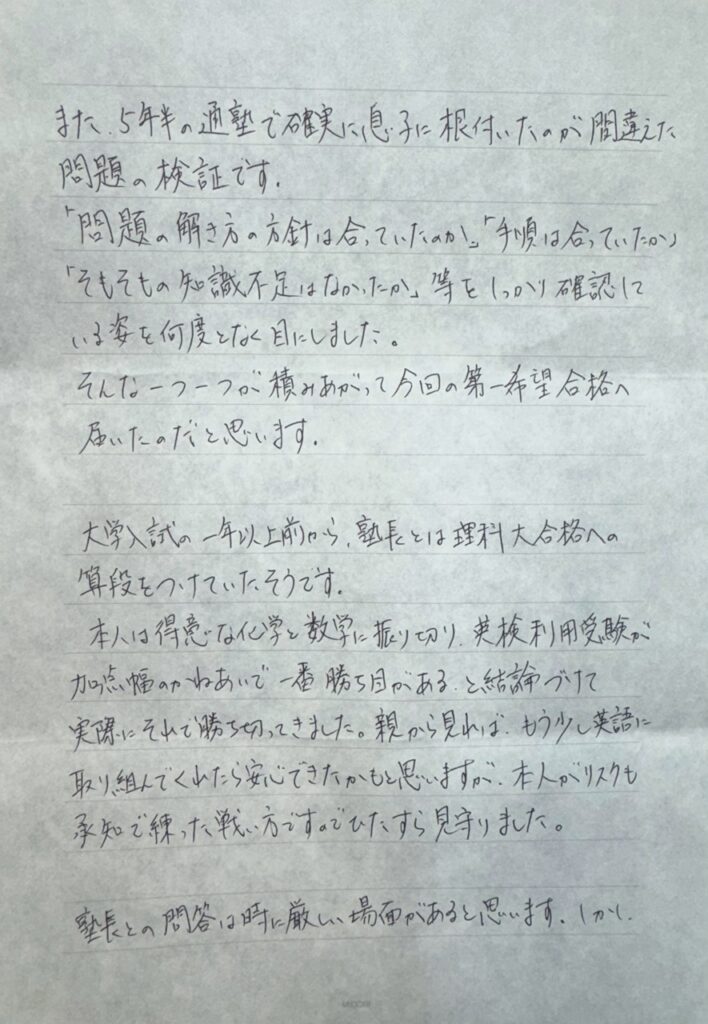 また、5年半の通塾で確実に息子に根付いたのが間違えた
問題の検証です。
「問題の解き方の方針は合っていたのか」「手順は合っていたか」
「そもそもの知識不足はなかったか」等をしっかり確認して
いる姿を何度となく目にしました。
そんな一つ一つが積みあがって今回の第一希望合格へ
届いたのだと思います。
大学入試の一年以上前から、塾長とは理科大合格への
算段をつけていたそうです。
本人は得意な化学と数学に振り切り、英検利用受験が
加点幅のかねあいで一番勝ち目がある、と結論づけて
実際にそれで勝ち切ってきました。親から見れば、もう少し英語に
取り組んでくれたら安心できたかもと思いますが、本人がリスクも
承知で練った戦い方ですのでひたすら見守りました。
塾長との問答は時に厳しい場面があると思います。しかし、